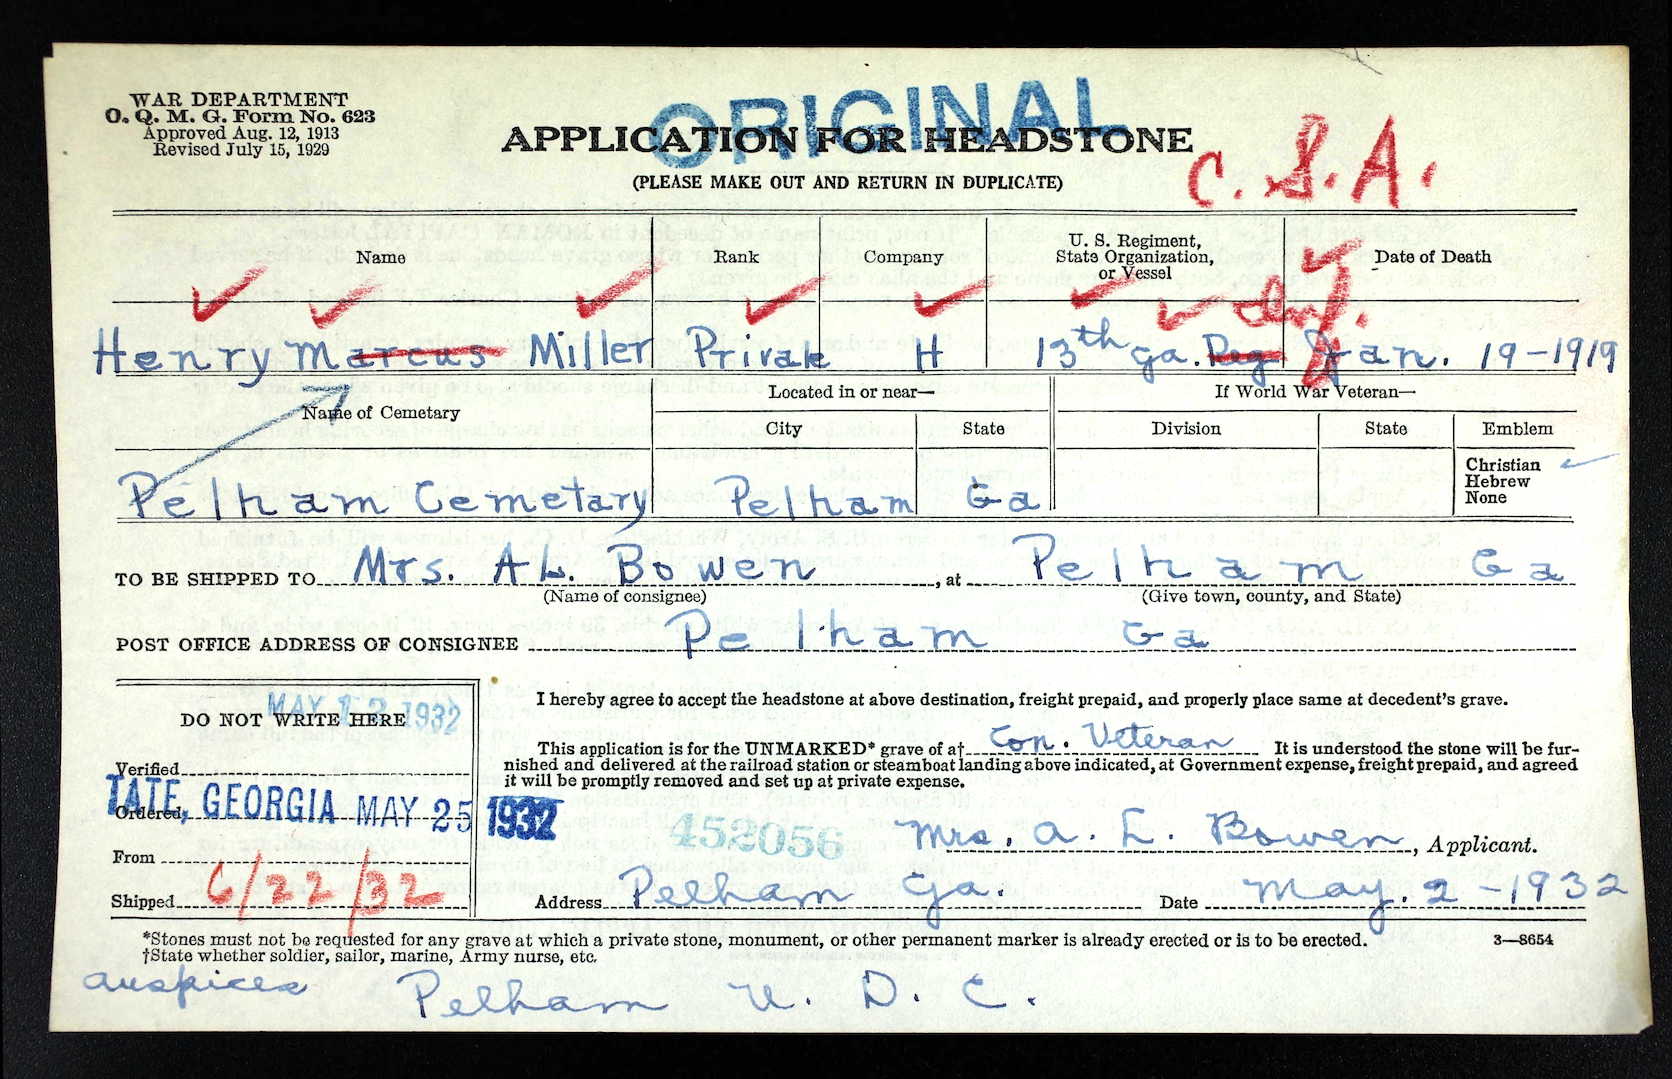 WAR DEPARTMENT
O. Q. M. G. Form No. 623
Approved Aug. 12, 1913
Revised July 15, 1929
ORIGINAL
APPLICATION FOR HEADSTONE
(PLEASE MAKE OUT AND RETURN IN DUPLICATE)
C. S. A.
Name Rank Company U. S. Regiment, State Organization, or Vessel Date of Death
Henry Marcus Miller Private H 13th Ga. Reg Inf. Jan. 19-1919
Name of Cemetary Located in or near— If World War Veteran—
City State Division State Emblem
Christian
Hebrew
None
Pelham Cemetary Pelham Ga
TO BE SHIPPED TO Mrs. A L. Bowen, at Pelham Ga
(Name of consignee) (Give town, county, and State)
POST OFFICE ADDRESS OF CONSIGNEE Pelham Ga
DO NOT WRITE HERE
MAY 12 1932
I hereby agree to accept the headstone at above destination, freight prepaid, and properly place same at decedent's grave.
This application is for the UNMARKED* grave of a† Con. Veteran It is understood the stone will be fur-
nished and delivered at the railroad station or steamboat landing above indicated, at Government expense, freight prepaid, and agreed
it will be promptly removed and set up at private expense.
Verified
TATE, GEORGIA MAY 25 1932
Ordered
452056
Mrs. A. L. Bowen, Applicant.
From
Shipped 6/22/32
Address Pelham Ga. Date May. 2-1932
*Stones must not be requested for any grave at which a private stone, monument, or other permanent marker is already erected or is to be erected. 3—8654
†State whether soldier, sailor, marine, Army nurse, etc.
auspices Pelham U. D. C.